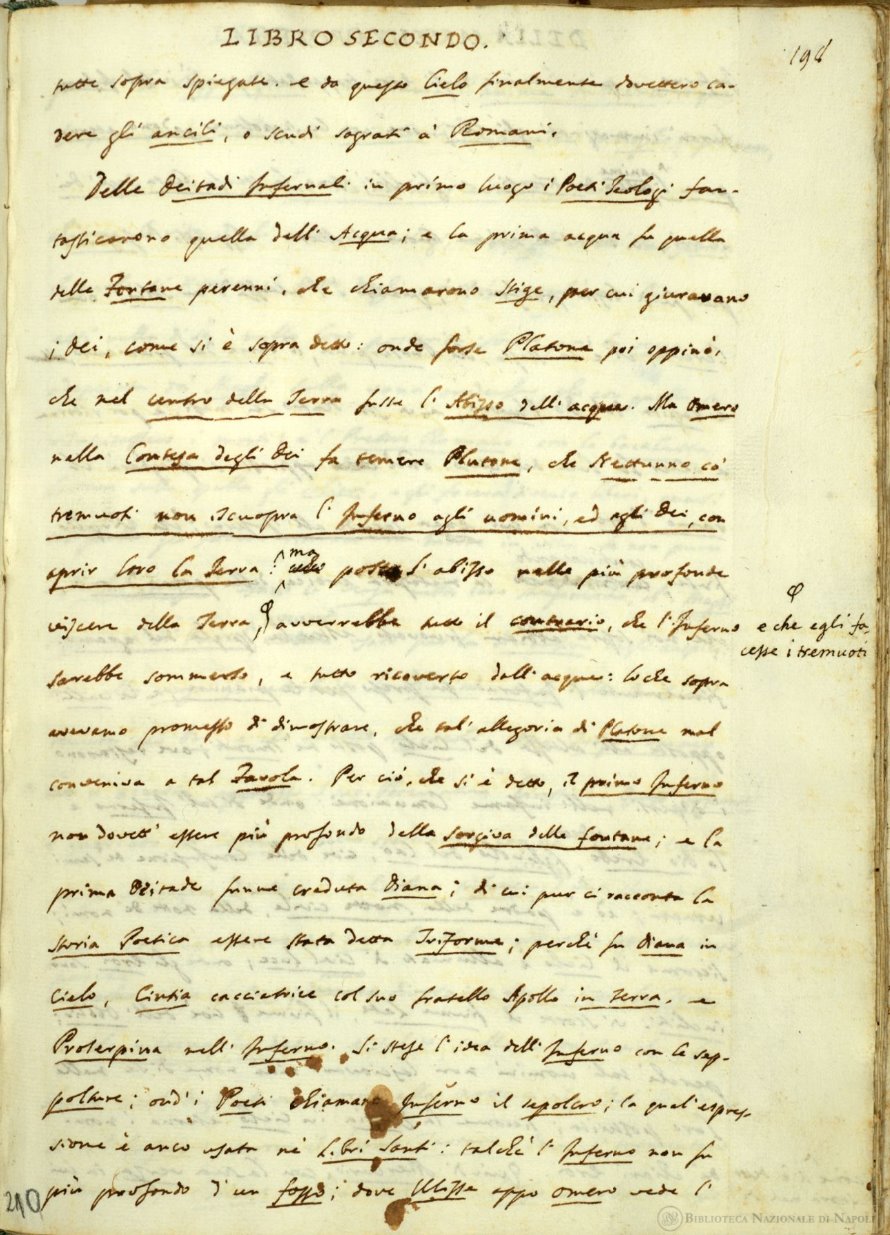 LIBRO SECONDO.
198
tutte sopra spiegate. e da questo Cielo finalmente dovettero ca-
dere gli ancili, o scudi sagrati a' Romani.
Delle Deitadi Infernali in primo luogo i Poeti Teologi fan-
tasticarono quella dell' Acqua; e la prima acqua fu quella
delle Fontane perenni, che chiamarono Stige, per cui giuravano
i Dei, come si è sopra detto: onde forse Platone poi oppinò,
che nel centro della Terra fusse l' Abisso dell' acque. Ma Omero
nella Contesa degli Dei fa temere Plutone, che Nettunno co'
tremuoti non iscuopra l' Inferno agli uomini, ed agli Dei, con
aprir loro la Terra: ma
posto l' abisso nelle più profonde
viscere della Terra, φ avverrebbe tutto il contrario, che l' Inferno
φ
e che egli fa-
cesse i tremuoti
sarebbe sommerso, e tutto ricoverto dall' acque: loche sopra
avevamo promesso di dimostrare, che tal' allegoria di Platone mal
conveniva a tal Favola. Per ciò, che si è detto, il primo Inferno
non dovett' essere più profondo della sorgiva delle fontane; e la
prima Deitade funne creduta Diana; di cui pur ci racconta la
Storia Poetica essere stata detta Triforme; perchè fu Diana in
Cielo, Cintia cacciatrice col suo fratello Apollo in Terra, e
Proserpina nell' Inferno. Si stese l' idea dell' Inferno con le sep-
polture; ond' i Poeti chiamano Inferno il sepolcro; la qual' espres-
sione è ancò usata ne' Libri Santi: talchè l' Inferno non fu
più profondo d' un fosso; dove Ulisse appo Omero vede l'
210
BIBLIOTECA NAZIONALE DI NAPOLI